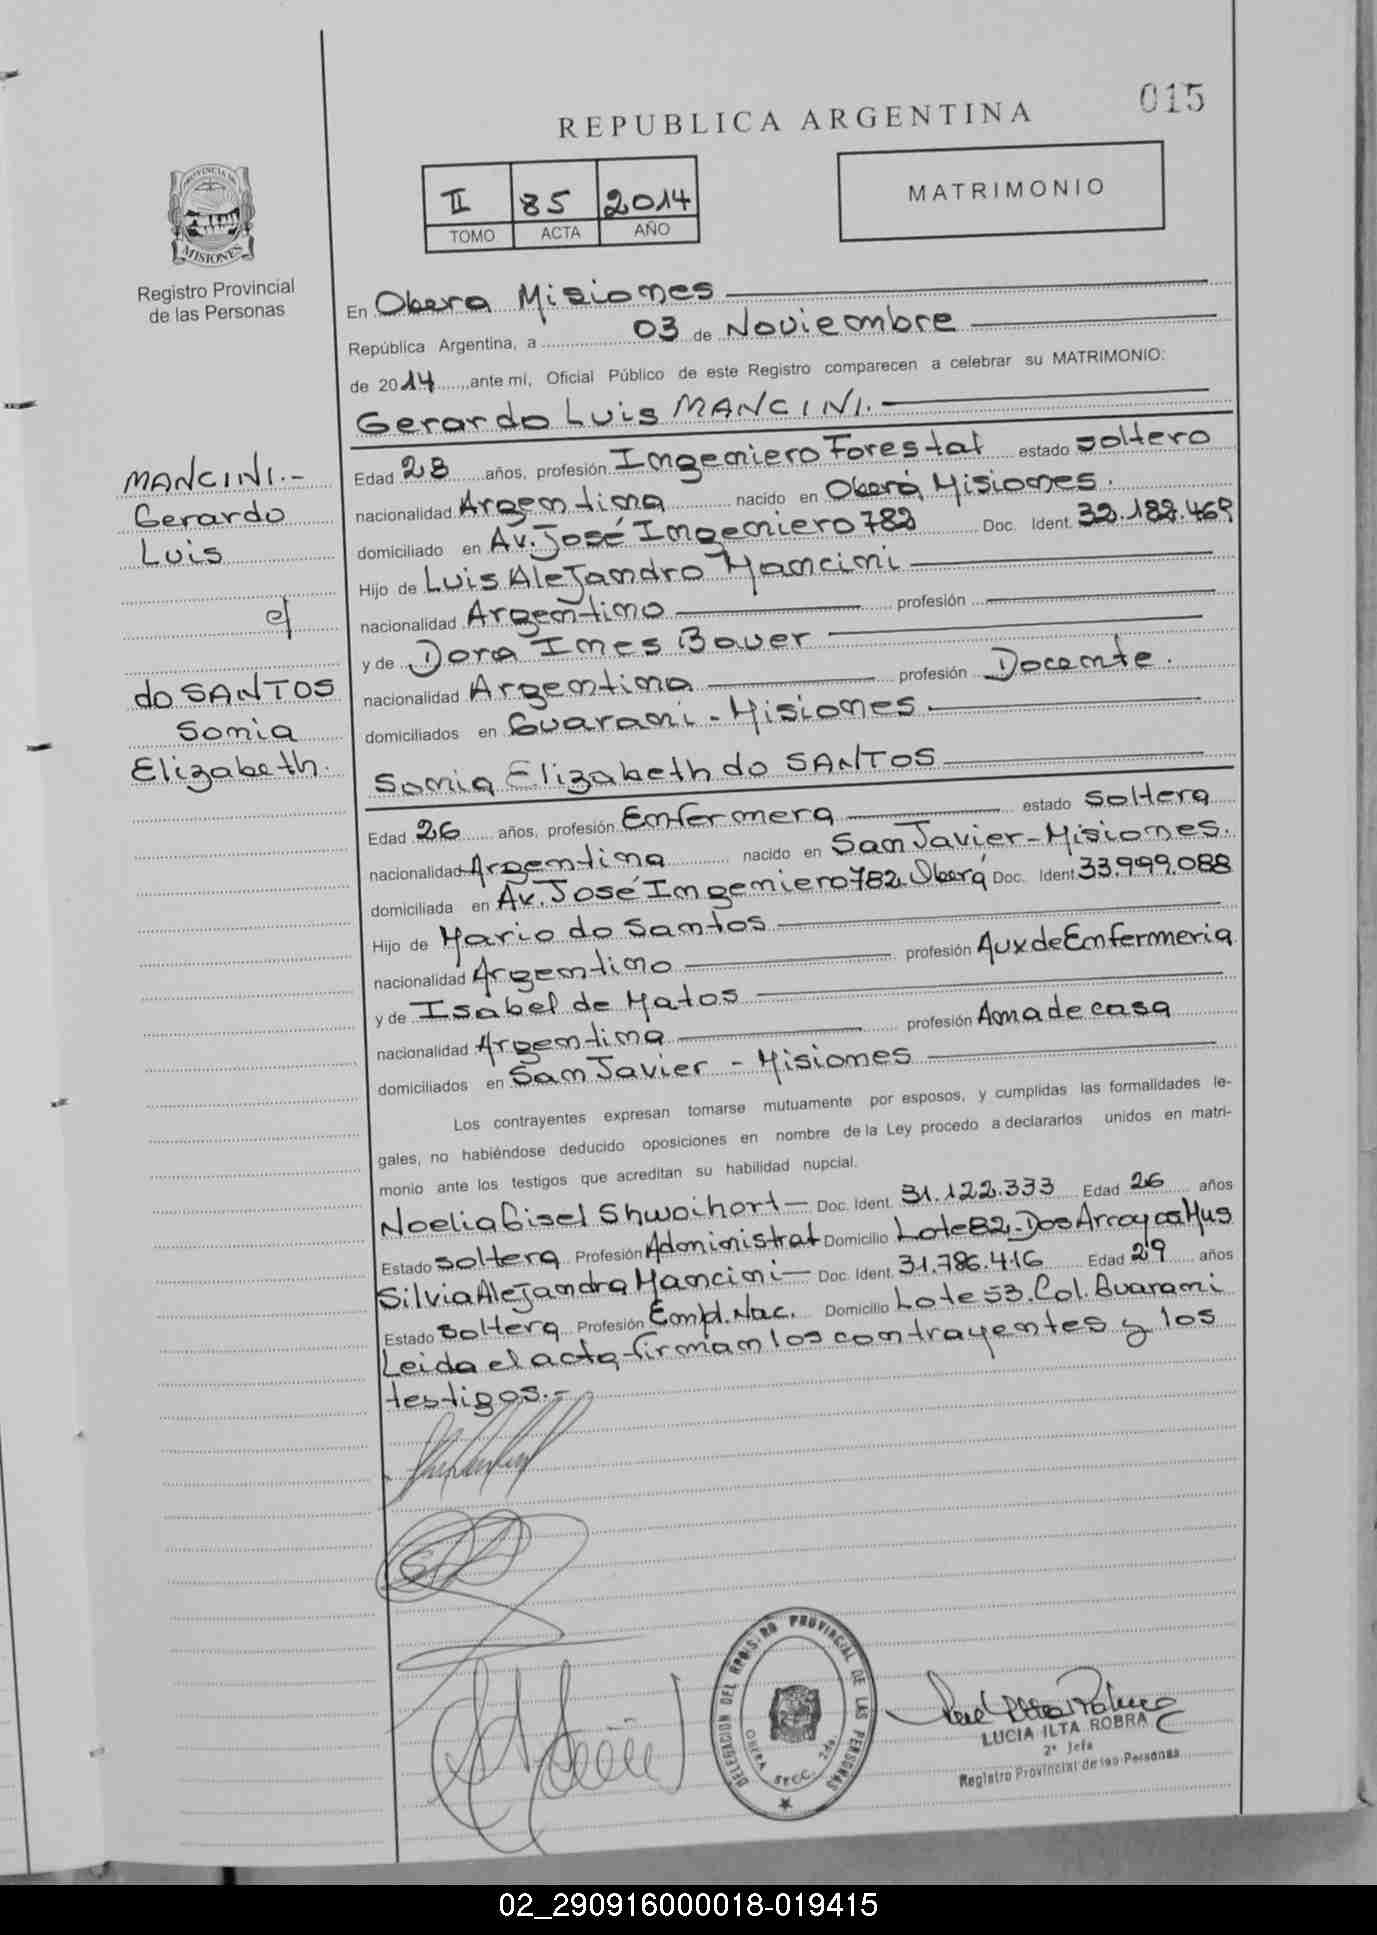 015
REPUBLICA ARGENTINA
II 85 2014
TOMO ACTA AÑO
MATRIMONIO
PROVINCIA DE
MISIONES
Registro Provincial
de las Personas
En Obera Misiones
República Argentina, a 03 de Noviembre
de 2014 ante mi, Oficial Público de este Registro comparecen a celebrar su MATRIMONIO:
Gerardo Luis MANCINI.
MANCINI.-
Gerardo
Luis
c/
do SANTOS
Sonia
Elizabeth.
Edad 28 años, profesión Ingeniero Forestal estado soltero
nacionalidad Argentina nacido en Oberá Misiones.
domiciliado en Av. José Ingeniero 782 Doc. Ident. 32.188.469
Hijo de Luis Alejandro Mancini
nacionalidad Argentino profesión
y de Dora Ines Bauer
nacionalidad Argentina profesión Docente.
domiciliados en Guarani - Misiones
Sonia Elizabeth do SANTOS
Edad 26 años, profesión Enfermera estado soltera
nacionalidad Argentina nacido en San Javier - Misiones.
domiciliada en Av. José Ingeniero 782. Oberá Doc. Ident. 33.999.088
Hijo de Mario do Santos
nacionalidad Argentino profesión Aux de Enfermeria
y de Isabel de Matos
nacionalidad Argentina profesión Ama de casa
domiciliados en San Javier - Misiones
Los contrayentes expresan tomarse mutuamente por esposos, y cumplidas las formalidades le-
gales, no habiéndose deducido oposiciones en nombre de la Ley procedo a declararlos unidos en matri-
monio ante los testigos que acreditan su habilidad nupcial.
Noelia Gisel Shwoihort - Doc. Ident. 31.122.333 Edad 26 años
Estado soltera Profesión Administrat Domicilio Lote 82 - Dos Arroyos Mus
Silvia Alejandra Mancini - Doc. Ident. 31.786.416 Edad 29 años
Estado soltera Profesión Empl. Nac. Domicilio Lote 53. Col. Guarani
Leida el acta firman los contrayentes y los
testigos.-
DELEGACION DEL REGISTRO PROVINCIAL DE LAS PERSONAS
OBERA SECC. 2da.
LUCIA ILTA ROBRA
2º Jefa
Registro Provincial de las Personas
02_290916000018-019415